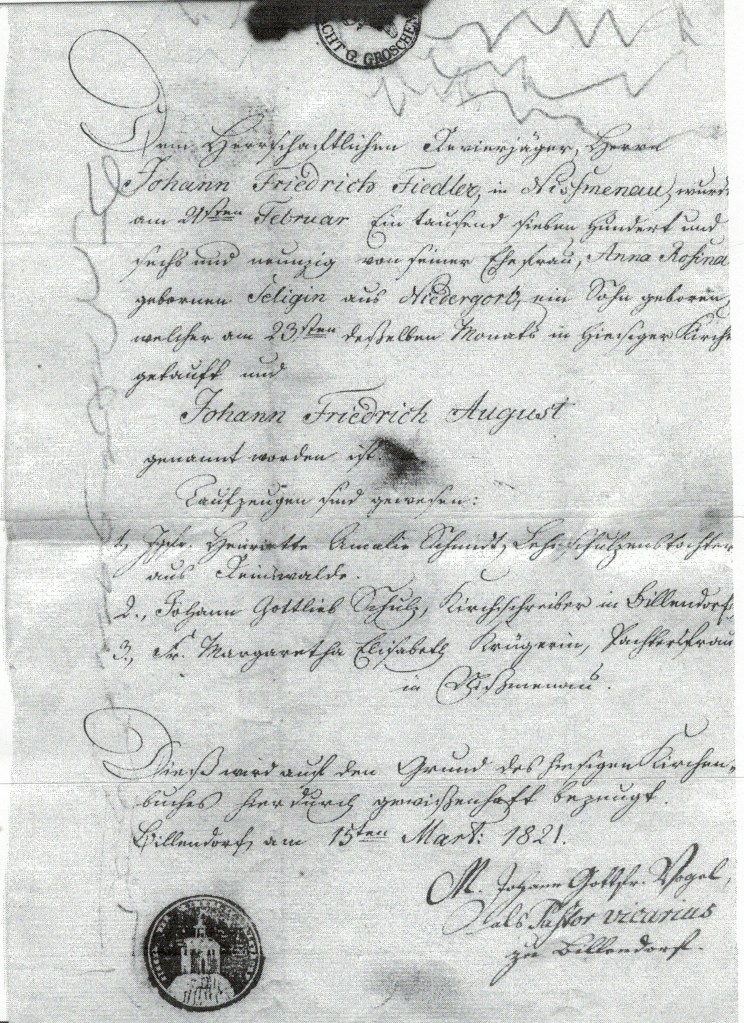 ACHT G. GROSCHEN
Dem Herrschaftlichen Revierjäger, Herrn
Johann Friedrich Fiedler, in Nissmenau, wurde
am 21sten Februar Ein tausend sieben hundert und
sechs und neunzig von seiner Ehefrau, Anna Rosina
gebornen Seligin aus Niedergorb, ein Sohn geboren,
welcher am 23sten deßelben Monats in hiesiger Kirche
getauft und
Johann Friedrich August
genannt worden ist.
Taufzeugen sind gewesen:
1., Jgfr. Henriette Amalie Schmidt, Lehnschulzenstochter
aus Reinswalde.
2., Johann Gottlieb Schulz, Kirchschreiber in Billendorf,
3., Fr. Margaretha Elisabeth Krügerin, Pachtersfrau
in Nißmenau.
Dieß wird auf den Grund des hiesigen Kirchen-
buches hierdurch gewißenhaft bezeugt.
Billendorf, am 15ten Mart: 1821.
M. Johann Gottfr. Vogel,
als Pastor vicarius
zu Billendorf.